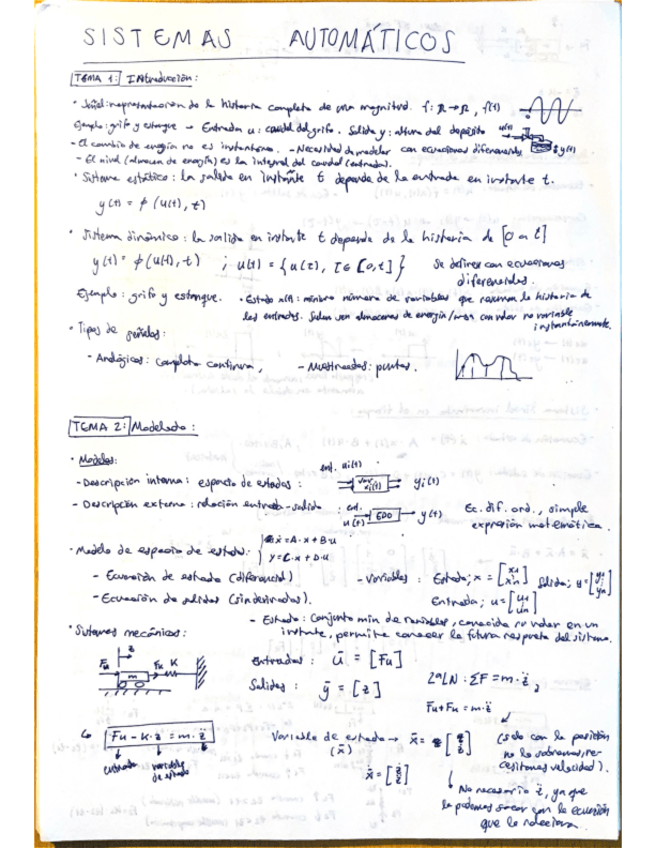 SISTEMAS AUTOMÁTICOS
TEMA 1: Introducción:
· Señal: representación de la historia completa de una magnitud. f: R→R, f(t)
Ejemplo: grifo y estanque → Entrada u: caudal del grifo. Salida y: altura del depósito u(t)
- El cambio de energía no es instantáneo. - Necesidad de modelar con ecuaciones diferenciales y(t)
- El nivel (almacen de energía) es la integral del caudal (entrada).
· Sistema estático: la salida en instante t depende de la entrada en instante t.
y(t) = φ(u(t), t)
· Sistema dinámico: la salida en instante t depende de la historia de [0 a t]
y(t) = φ(u(t), t) ; u(t) = {u(τ), τ∈[0,t]} se definen con ecuaciones
diferenciales.
Ejemplo: grifo y estanque. · Estado x(t): mínimo número de variables que resuma la historia de
las entradas. Suelen ser almacenes de energía/masa con valor no variable
instantáneamente.
· Tipos de señales:
- Analógicas: completa continua, - Muestreadas: puntos.
TEMA 2: Modelado:
· Modelos:
- Descripción interna: espacio de estados: ent. ui(t) xi(t) yi(t)
- Descripción externa: relación entrada-salida: ent. u(t) EDO y(t) Ec. dif. ord., simple
expresión matemática.
· Modelo de espacio de estado: ẋ = A·x + B·u
y = C·x + D·u
- Ecuación de estado (diferencial) - Variables: Estado; x = [x1 xn] Salida; y = [y1 yn]
- Ecuación de salidas (sin derivadas). Entrada; u = [u1 un]
- Estado: Conjunto mín de variables, conocido su valor en un
instante, permite conocer la futura respuesta del sistema.
· Sistemas mecánicos:
z
Fu m Fk K
Entradas: ū = [Fu]
Salidas: ȳ = [z]
2ªLN: ΣF = m·z̈
Fu + Fk = m·z̈
Fu - K·z = m·z̈
entrada variable de estado
Variable de estado → x̄ = [z ż]
(x̄)
ẋ = [ż z̈]
(solo con la posición
no lo sabremos, ne-
cesitamos velocidad).
No necesario z̈, ya que
la podemos sacar con la ecuación
que lo relaciona.